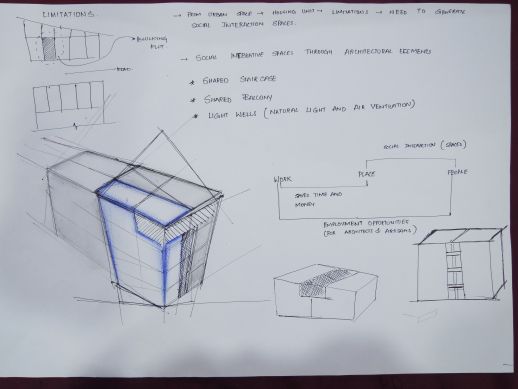 LIMITATIONS.
→ FROM URBAN SPACE → HOUSING UNIT → LIMITATIONS → NEED TO GENERATE
SOCIAL INTERACTION SPACES.
PLOT.
ROAD.
→ SOCIAL INTERATIVE SPACES THROUGH ARCHITECTURAL ELEMENTS
* SHARED STAIRCASE
* SHARED BALCONY
* LIGHT WELLS (NATURAL LIGHT AND AIR VENTILATION)
SOCIAL INTERACTION (SPACES)
WORK
PLACE
PEOPLE
SAVES TIME AND
MONEY
EMPLOYMENT OPPORTUNITIES
(FOR ARCHITECTS & ARTISANS)